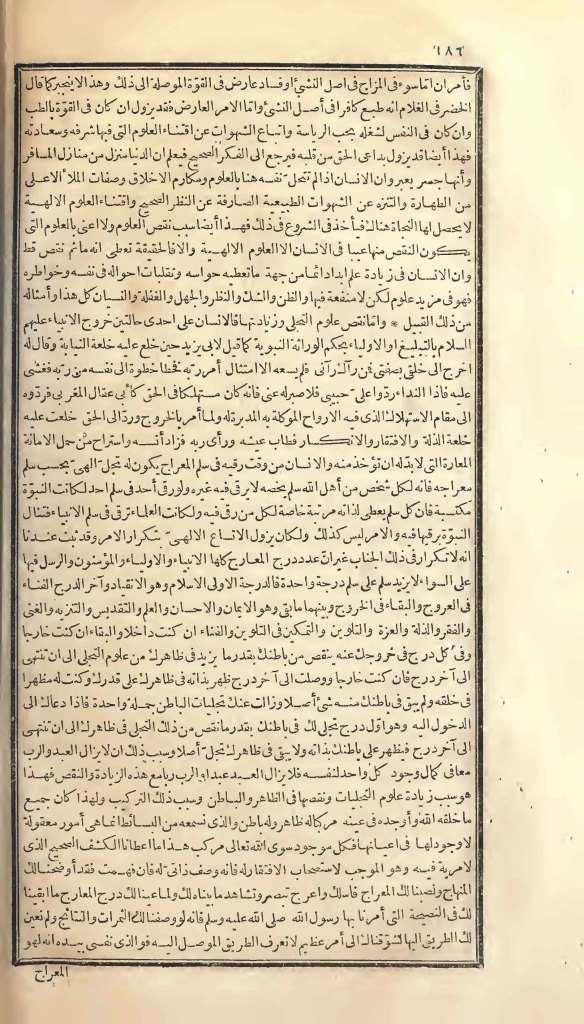 ١٨٦
فأمران اما سوء فى المزاج فى أصل النشئ أو فساد عارض فى القوة الموصلة الى ذلك وهذا لا ينجبر كما قال
الخضر فى الغلام انه طبع كافرا فى أصل النشئ وأما الامر العارض فقد يزول ان كان فى القوة بالطب
وان كان فى النفس لشغله بحب الرياسة واتباع الشهوات عن اقتناء العلوم التى فيها شرفه وسعادته
فهذا أيضا قد يزول بداعى الحق من قلبه فيرجع الى الفكر الصحيح فيعلم ان الدنيا منزل من منازل المسافر
وأنها جسر يعبر وان الانسان اذا لم تتحل نفسه هنا بالعلوم ومكارم الاخلاق وصفات الملأ الاعلى
من الطهارة والتنزه عن الشهوات الطبيعية الصارفة عن النظر الصحيح واقتناء العلوم الالهية
لا يحصل لها النجاة هناك فيأخذ فى الشروع فى ذلك فهذا أيضا سبب نقص العلوم ولا أعنى بالعلوم التى
يكون النقص منها عيبا فى الانسان الا العلوم الالهية والا فالحقيقة تعطى انه ما ثم نقص قط
وان الانسان فى زيادة علم ابدا دائما من جهة ما تعطيه حواسه وتقلبات احواله فى نفسه وخواطره
فهو فى مزيد علوم لكن لا منفعة فيها والظن والشك والنظر والجهل والغفلة والنسيان كل هذا وأمثاله
من ذلك القبيل * واما نقص علوم التجلى وزيادتها فالانسان على احدى حالتين خروج الانبياء عليهم
السلام بالتبليغ او الاولياء بحكم الوراثة النبوية كما قيل لابى يزيد حين خلع عليه خلعة النيابة وقال له
اخرج الى خلقى بصفتى فمن رآك رآنى فلم يسعه الا امتثال أمر ربه فخطا خطوة الى نفسه من ربه فغشى
عليه فاذا النداء ردوا على حبيبى فلا صبر له عنى فانه كان مستهلكا فى الحق كأبى عقال المغربى فردوه
الى مقام الاستهلاك الذى فيه الارواح الموكلة به المدبرة له ولما أمر بالخروج ورد الى الحق خلعت عليه
خلعة الذلة والافتقار والانكسار فطاب عيشه ورأى ربه فزاد أنسه واستراح من حمل الامانة
المعارة التى لا بد له ان تؤخذ منه والانسان من وقت رقيه فى سلم المعراج يكون له تجل الهى بحسب سلم
معراجه فانه لكل شخص من أهل الله سلم يخصه لا يرقى فيه غيره ولو رقى أحد فى سلم احد لكانت النبوة
مكتسبة فان كل سلم يعطى لذاته مرتبة خاصة لكل من رقى فيه ولكانت العلماء ترقى فى سلم الانبياء فتنال
النبوة برقيها فيه والامر ليس كذلك ولكان يزول الاتساع الالهى بتكرار الامر وقد ثبت عندنا
انه لا تكرار فى ذلك الجناب غير ان عدد درج المعارج كلها الانبياء والاولياء والمؤمنون والرسل فيها
على السواء لا يزيد سلم على سلم درجة واحدة فالدرجة الاولى الاسلام وهو الانقياد وآخر الدرج الفناء
فى العروج والبقاء فى الخروج وبينهما ما بقى وهو الايمان والاحسان والعلم والتقديس والتنزيه والغنى
والفقر والذلة والعزة والتلوين والتمكين فى التلوين والفناء ان كنت داخلا والبقاء ان كنت خارجا
وفى كل درج فى خروجك عنه ينقص من باطنك بقدر ما يزيد فى ظاهرك من علوم التجلى الى ان تنتهى
الى آخر درج فان كنت خارجا ووصلت الى آخر درج ظهر بذاته فى ظاهرك على قدرك وكنت له مظهرا
فى خلقه ولم يبق فى باطنك منه شئ أصلا وزالت عنك تجليات الباطن جملة واحدة فاذا دعاك الى
الدخول اليه وهو اول درج تجلى لك فى باطنك بقدر ما نقص من ذلك التجلى فى ظاهرك الى ان تنتهى
الى آخر درج فيظهر على باطنك بذاته ولا يبقى فى ظاهرك تجل أصلا وسبب ذلك ان لا يزال العبد والرب
معا فى كمال وجود كل واحد لنفسه فلا يزال العبد عبدا والرب ربا مع هذه الزيادة والنقص فهذا
هو سبب زيادة علوم التجليات ونقصها فى الظاهر والباطن وسبب ذلك التركيب ولهذا كان جميع
ما خلقه الله وأوجده فى عينه مركبا له ظاهر وله باطن والذى نسمعه من البسائط انما هى أمور معقولة
لا وجود لها فى اعيانها فكل موجود سوى الله تعالى مركب هذا ما اعطانا الكشف الصحيح الذى
لا مرية فيه وهو الموجب لاستصحاب الافتقار له فانه وصف ذاتى له فان فهمت فقد أوضحنا لك
المنهاج ونصبنا لك المعراج فاسلك واعرج تبصر وتشاهد ما بيناه لك ولما عينا لك درج المعارج ما ابقينا
لك فى النصيحة التى أمرنا بها رسول الله صلى الله عليه وسلم فانه لو وصفنا لك الثمرات والنتائج ولم نعين
لك الطريق اليها لشوقناك الى أمر عظيم لا تعرف الطريق الموصل اليه فو الذى نفسى بيده انه لهو
المعراج